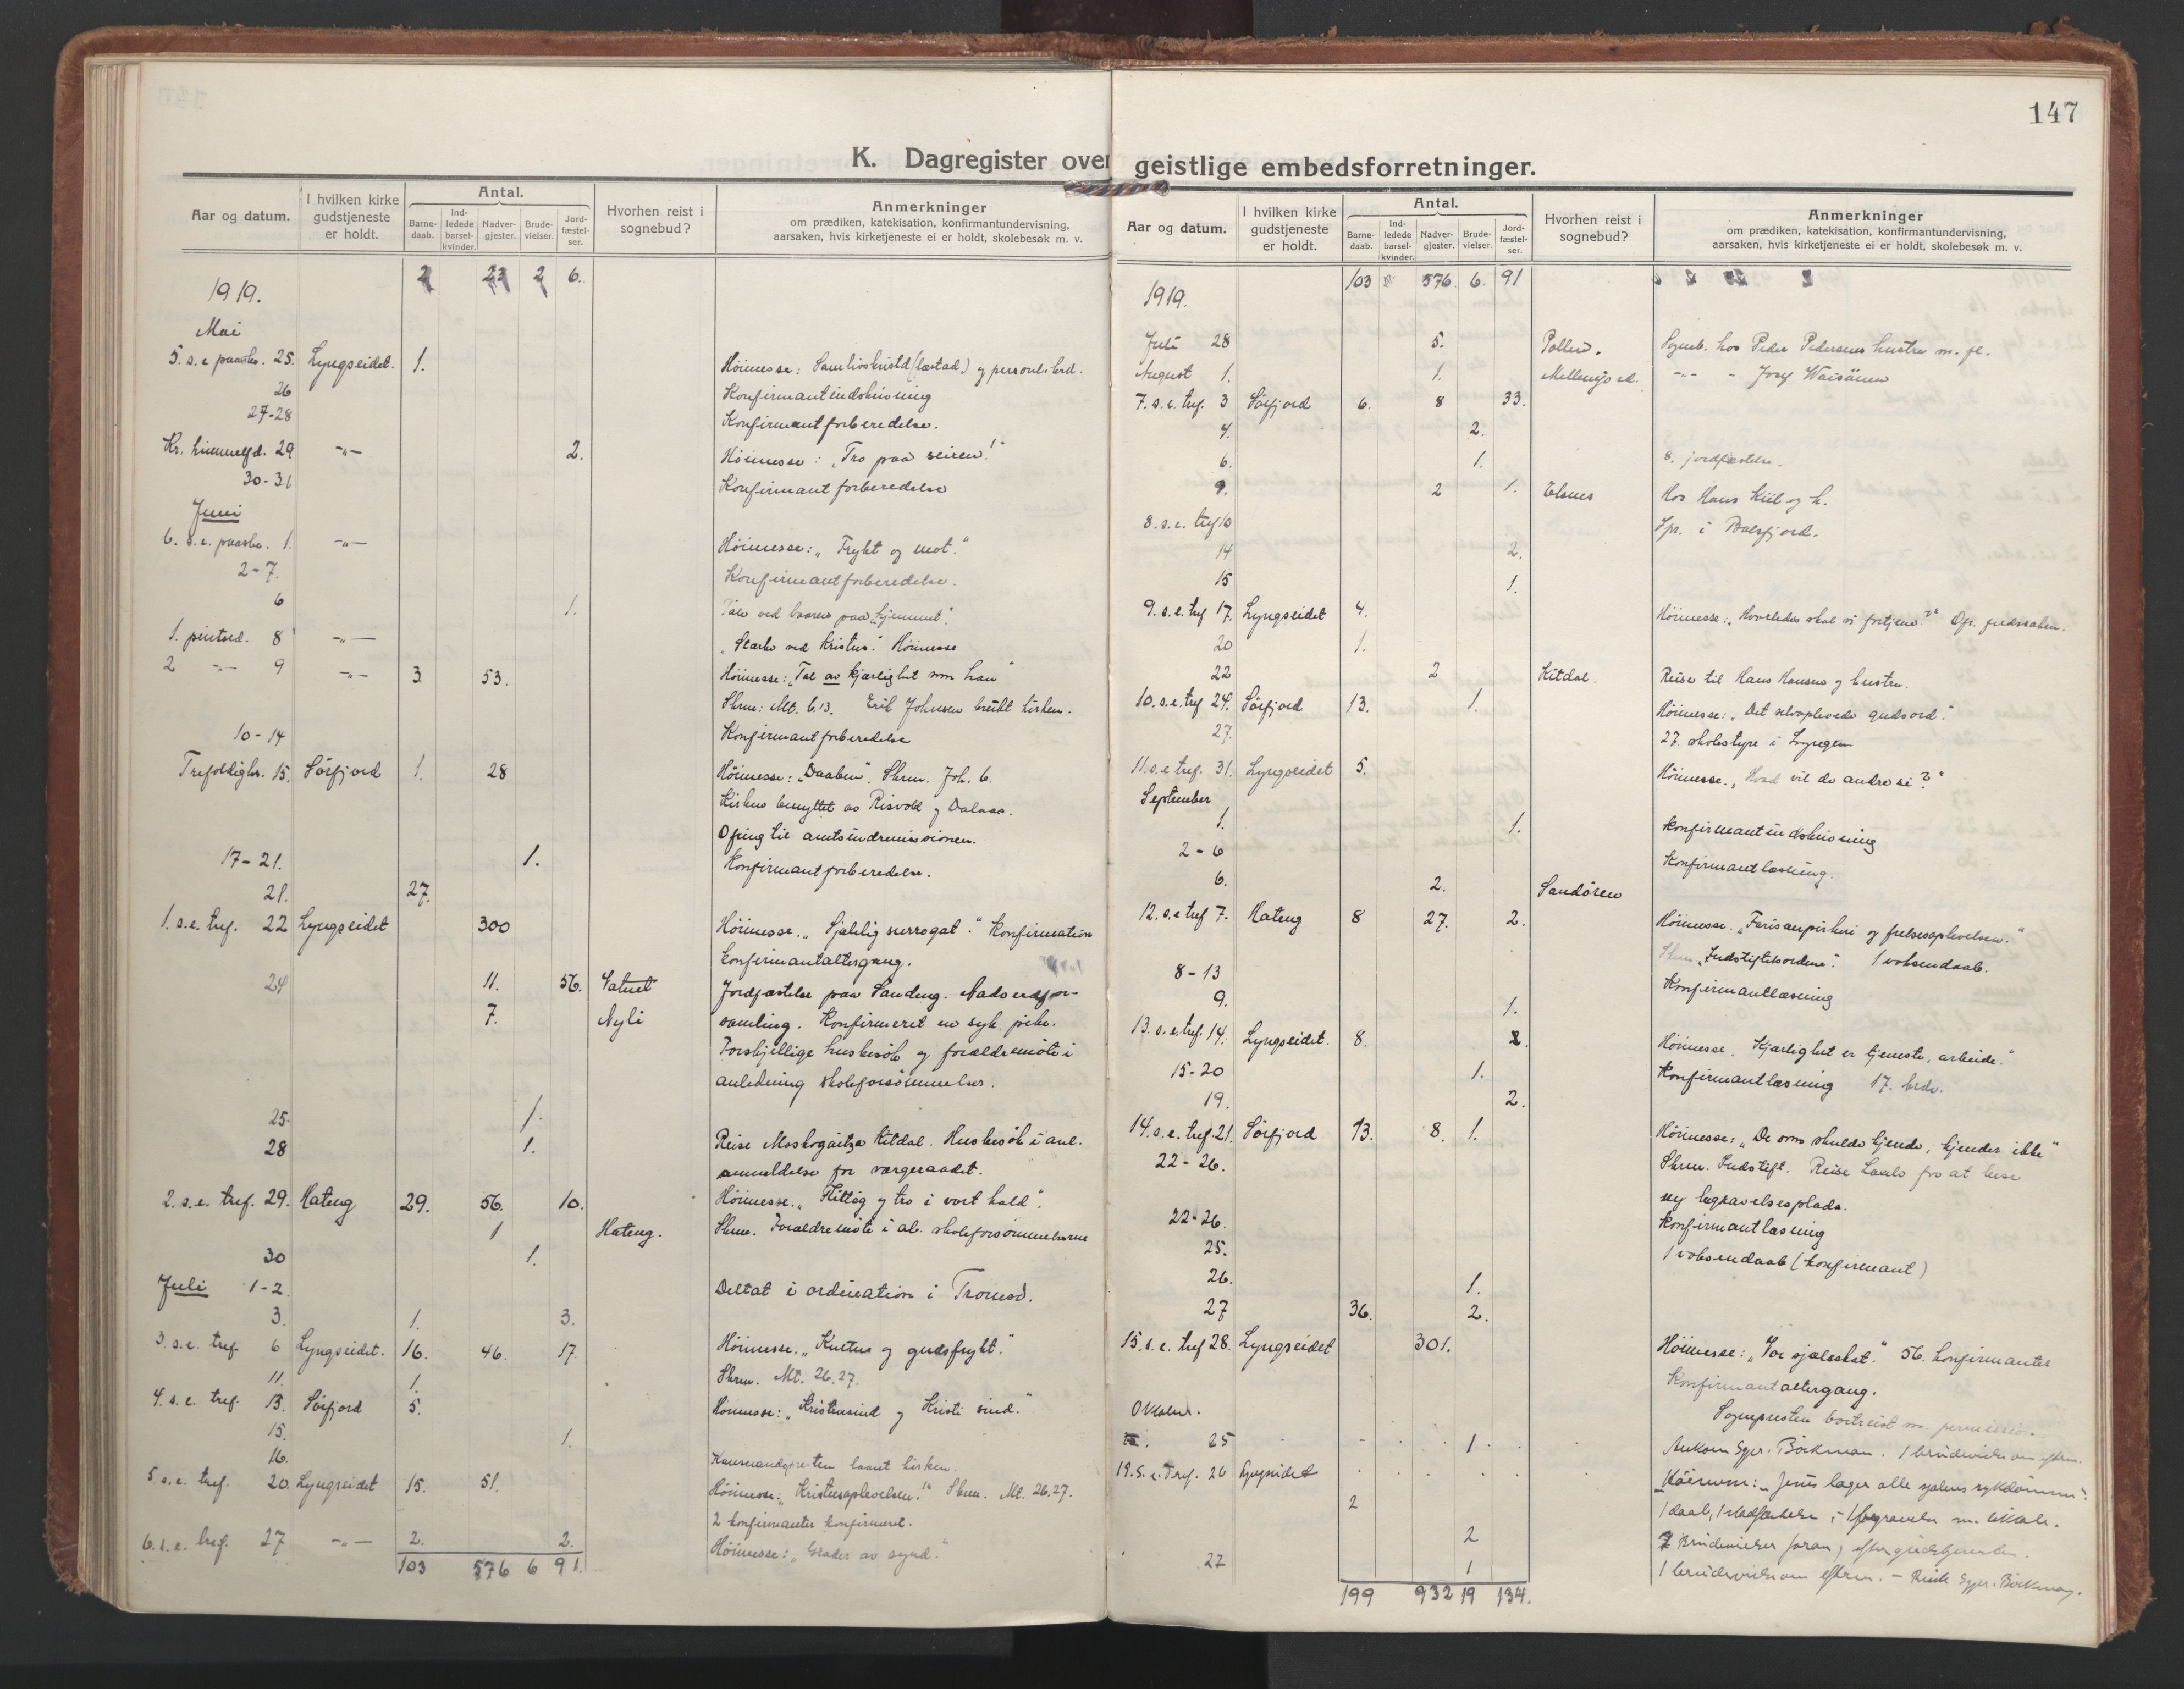 147
K. Dagregister over geistlige embedsforretninger.
Aar og datum. I hvilken kirke gudstjeneste er holdt. Antal. Barne-daab. Ind-ledede barsel-kvinder. Nadver-gjester. Brude-vielser. Jord-fæstel-ser. Hvorhen reist i sognebud? Anmerkninger om prædiken, katekisation, konfirmantundervisning, aarsaken, hvis kirketjeneste ei er holdt, skolebesøk m. v.
2 23 2 6.
1919.
Mai
5. s. e paaske. 25. Lyngseidet. 1. Höimesse: Samlivskristd (læstad) og personl. krd.
26 Konfirmantindskrivning
27-28 Konfirmantforberedelse.
Kr. himmelfd. 29 -"- 2. Höimesse: "Tro paa seiren!"
30-31 Konfirmantforberedelse
Juni
6. s. e. paaske. 1. -"- Höimesse: "Frykt og mot."
2-7. Konfirmantforberedelse.
6 1. Tale ved baaren paa "Hjemmet".
1. pintsed. 8 -"- "Stærke ved Kristus". Höimesse
2 -"- 9 -"- 3. 53. Höimesse: "Tal av kjærlighet som han"
Skrm: Mt. 6.13. Erik Johnsen brukt kirken.
10-14 Konfirmantforberedelse
Trefoldighs. 15. Sörfjord 1. 28 Höimesse: "Daaben". Skrm. Joh. 6.
Kirken benyttet av Risvold og Dalaas.
Ofring til amtsindremissionen.
17-21. 1. Konfirmantforberedelse.
21. 27.
1. s. e. tref. 22 Lyngseidet 300 Höimesse. "Sjælelig surrogat". Konfirmation
Konfirmantaltergang.
24 11. 56. Jordfæstelse paa Sandeng. Nadverdfor-
7. Nyli samling. Konfirmeret en syk pike.
Forskjellige husbesök og forældremöte i
anledning skoleforsömmelser.
25. 1.
28 1. Reise Moskogaisa Kitdal. Husbesök i anl.
anmeldelse for vergeraadet.
2. s. e. tref. 29. Hateng 29. 56. 10. Höimesse. "Tillög og tro i vort kald".
1 Hateng. Skrm. Forældremöte i al. skoleforsömmelserne
30 1.
Juli 1-2. Deltat i ordination i Tromsö.
3. 1. 3.
3. s. e. tref. 6 Lyngseidet. 16. 46. 17. Höimesse. "Kultus og gudsfrykt."
11. 1. Skrm. Mt. 26.27.
4. s. e. tref. 13. Sörfjord 5. Höimesse: "Kristensind og Kristi sind."
15. 1.
16. laant kirken.
5. s. e. tref. 20. Lyngseidet 15. 51. Höimesse: "Kristusoplevelsen." Skrm. Mt. 26.27.
2 konfirmanter konfirmeret.
6. s. e. tref. 27 -"- 2. 2. Höimesse: "Grader av synd."
103 576 6 91.
Aar og datum. I hvilken kirke gudstjeneste er holdt. Antal. Barne-daab. Ind-ledede barsel-kvinder. Nadver-gjester. Brude-vielser. Jord-fæstel-ser. Hvorhen reist i sognebud? Anmerkninger om prædiken, katekisation, konfirmantundervisning, aarsaken, hvis kirketjeneste ei er holdt, skolebesøk m. v.
103 576. 6. 91
1919.
Juli 28 5. Pollen. Sogneb. hos Peder Pedersens hustru m. fl.
August 1. 1. -"- " Josef Waisänen
7. s. e. tref. 3 Sörfjord 6. 8 33.
4. 2.
6. 1. 8. jordfæstelse.
9. 2 1. Elsnes Hos Hans Kiil og h.
8. s. e. tref 10 Spr. i Balsfjord.
14 2.
15 1.
9. s. e. tref 17. Lyngseidet 4. Höimesse: "Hvorledes skal vi fortjene?" Ofr.
20 1.
22 2 Kitdal. Reise til Hans Hansen og hustru.
10. s. e. tref 24. Sörfjord 13. 1. Höimesse: "Det selvoplevede gudsord."
27. 27. skolestyre i Lyngen
11. s. e. tref. 31. Lyngseidet 5. Höimesse. "Hvad vil de andre si?"
September
1. 1. Konfirmantindskrivning
2-6 Konfirmantlæsning.
6. 2. Sandören
12. s. e. tref 7. Hateng 8 27. 2. Höimesse. "Farisæerfiskeri og frelsesoplevelsen."
Skrm. "Indstiftelsordene". 1 voksendaab.
8-13 Konfirmantlæsning
9. 1.
13. s. e. tref. 14. Lyngseidet. 8. 2. Höimesse. "Kjærlighet er tjeneste, arbeide."
15-20 1. Konfirmantlæsning 17. brdv.
19. 2.
14. s. e. tref. 21. Sörfjord 13. 8. 1. Höimesse: "De som skulde kjende, kjender ikke"
22-26. Skrm. Indstift. Reise for at bese
ny begravelsesplads.
22-26. Konfirmantlæsning
25. 1 voksendaab (konfirmant)
26. 1.
27 36. 2.
15. s. e. tref 28. Lyngseidet 301. Höimesse: "Vor sjæleskat." 56. konfirmanter
Konfirmantaltergang.
Oktober. Sognepresten bortreist m. permission.
25 1 Ankom Sgpr. Böckman. 1 brudevielse om efterm.
19. S. e. Tref. 26 Lyngseidet Höimesse: "Jesus læger alle sjælens sykdomme".
2 1 daab,
2 2 Brudevielser foran, efter gudstjenesten.
27 1 1 brudevielse om efterm. - Reiste Sgpr. Böckman.
199 932 19 134.